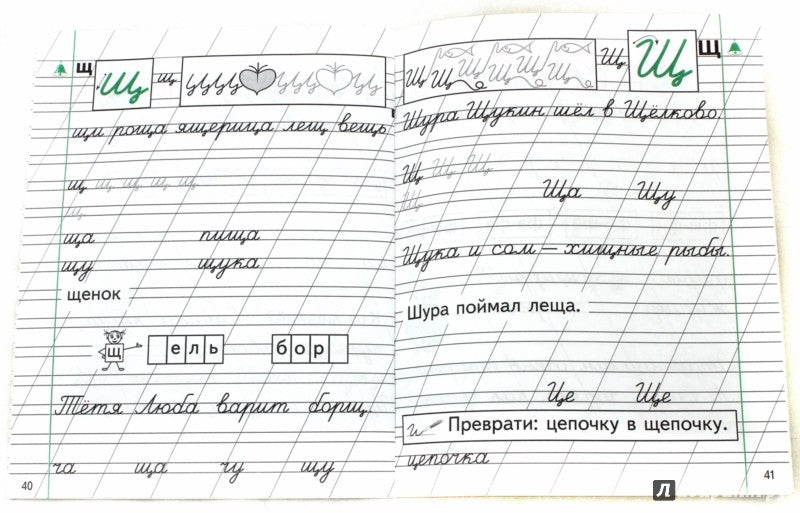 Щ Щ щ
щи роща ящерица лещ вещь
щ щ щ щ щ
щ
ща пища
щу щука
щенок
щ ель бор
Тётя Люба варит борщ.
ча ща чу щу
40
Щ Щ Щ Щ Щ Щ Щ Щ Щ
Шура Щукин шёл в Щёлково.
Щ Щ Щ
Щ
Ща Щу
Щука и сом — хищные рыбы.
Шура поймал леща.
Це Ще
и Преврати: цепочку в щепочку.
цепочка
41